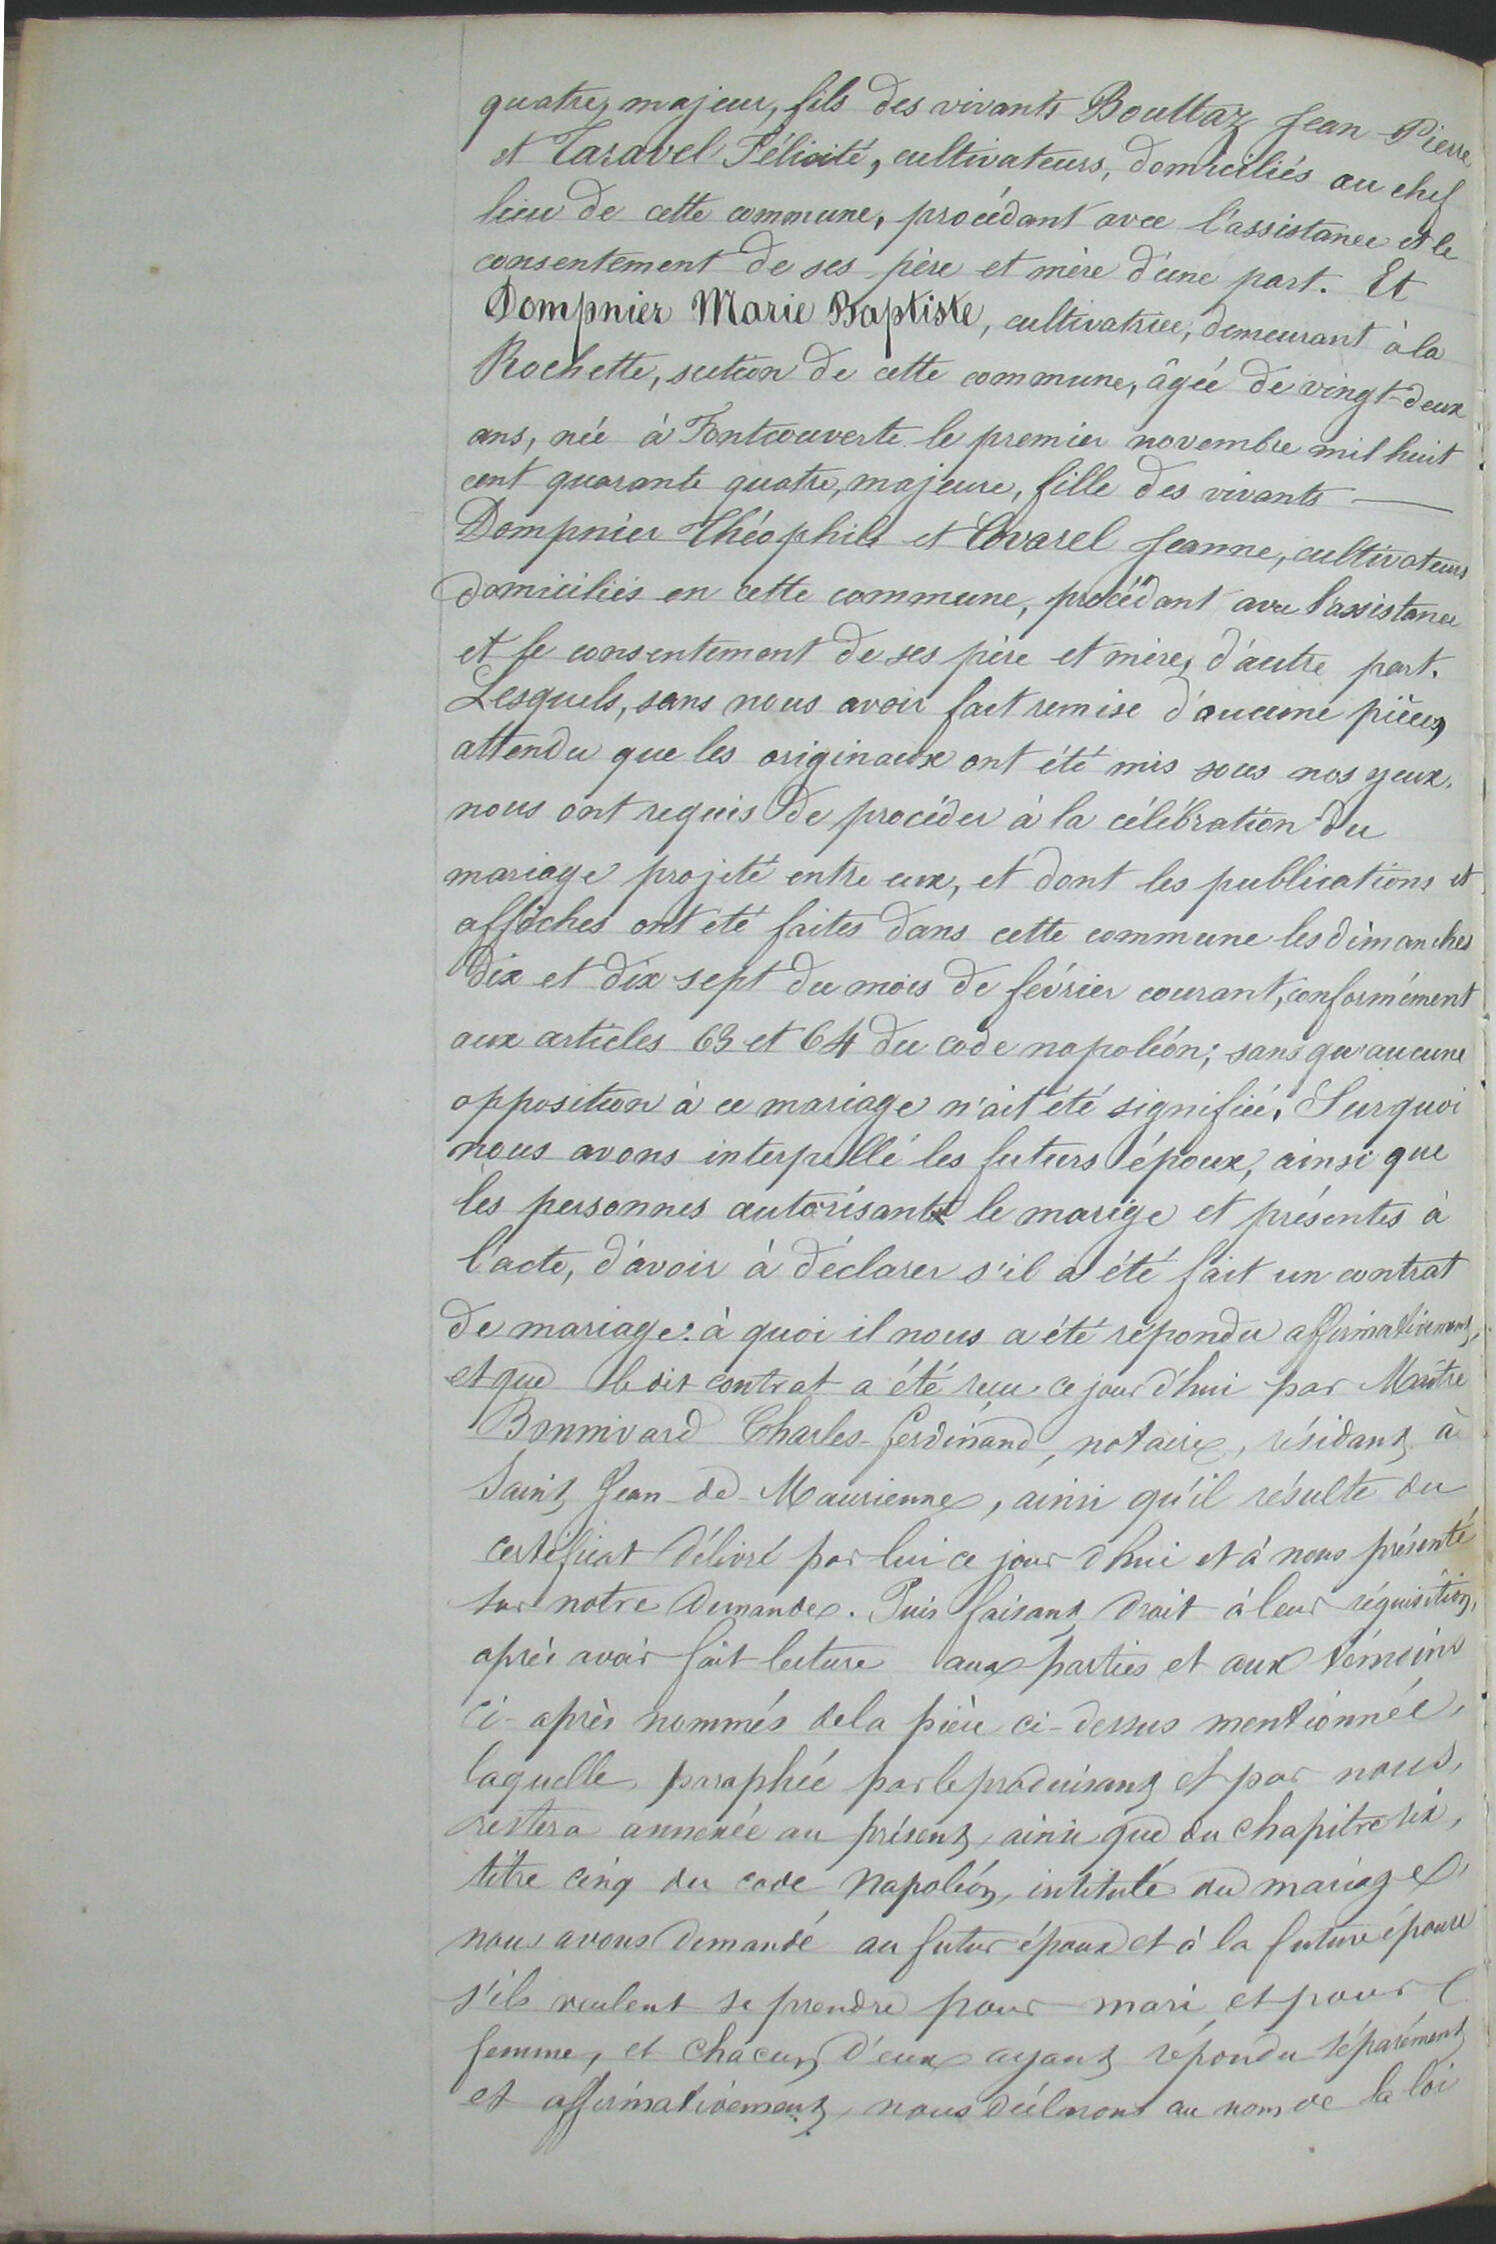 quatre, majeur, fils des vivants Boultaz Jean Pierre
et Taravel Félicité, cultivateurs, domiciliés au chef
lieu de cette commune, procédant avec l'assistance et le
consentement de ses père et mère d'une part. Et
Dompnier Marie Baptiste, cultivatrice, demeurant à la
Rochette, section de cette commune, âgée de vingt-deux
ans, née à Fontcouverte le premier novembre mil huit
cent quarante quatre, majeure, fille des vivants —
Dompnier Théophile et Covarel Jeanne, cultivateurs
domiciliés en cette commune, procédant avec l'assistance
et le consentement de ses père et mère, d'autre part.
Lesquels, sans nous avoir fait remise d'aucune pièces,
attendu que les originaux ont été mis sous nos yeux,
nous ont requis de procéder à la célébration du
mariage projeté entre eux, et dont les publications et
affiches ont été faites dans cette commune les dimanches
dix et dix sept du mois de février courant, conformément
aux articles 63 et 64 du code napoléon; sans qu'aucune
opposition à ce mariage n'ait été signifiée. Surquoi
nous avons interpellé les futurs époux, ainsi que
les personnes autorisant le marige et présentes à
l'acte, d'avoir à déclarer s'il a été fait un contrat
de mariage: à quoi il nous a été répondu affirmativement,
et que le dit contrat a été reçu ce jour d'hui par Maître
Bonnivard Charles-ferdinand, notaire, résidant à
Saint Jean-de-Maurienne, ainsi qu'il résulte du
certificat délivré par lui ce jour d'hui et à nous présenté
sur notre demande. Puis faisant droit à leur réquisition,
après avoir fait lecture aux parties et aux témoins
ci-après nommés de la pièce ci-dessus mentionnée,
laquelle, paraphée par le produisant et par nous,
restera annexée au présent, ainsi que du chapitre six,
titre cinq du code Napoléon, intitulé du mariage,
nous avons demandé au futur époux et à la future épouse
s'ils veulent se prendre pour mari et pour
femme, et chacun d'eux ayant répondu séparément
et affirmativement, nous déclarons au nom de la loi